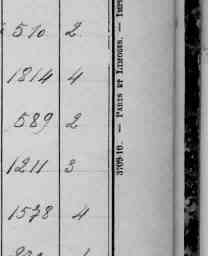 510 2
1814 4
589 2
1211 3
1578 4
3709-10. — PARIS ET LIMOGES. — IMP